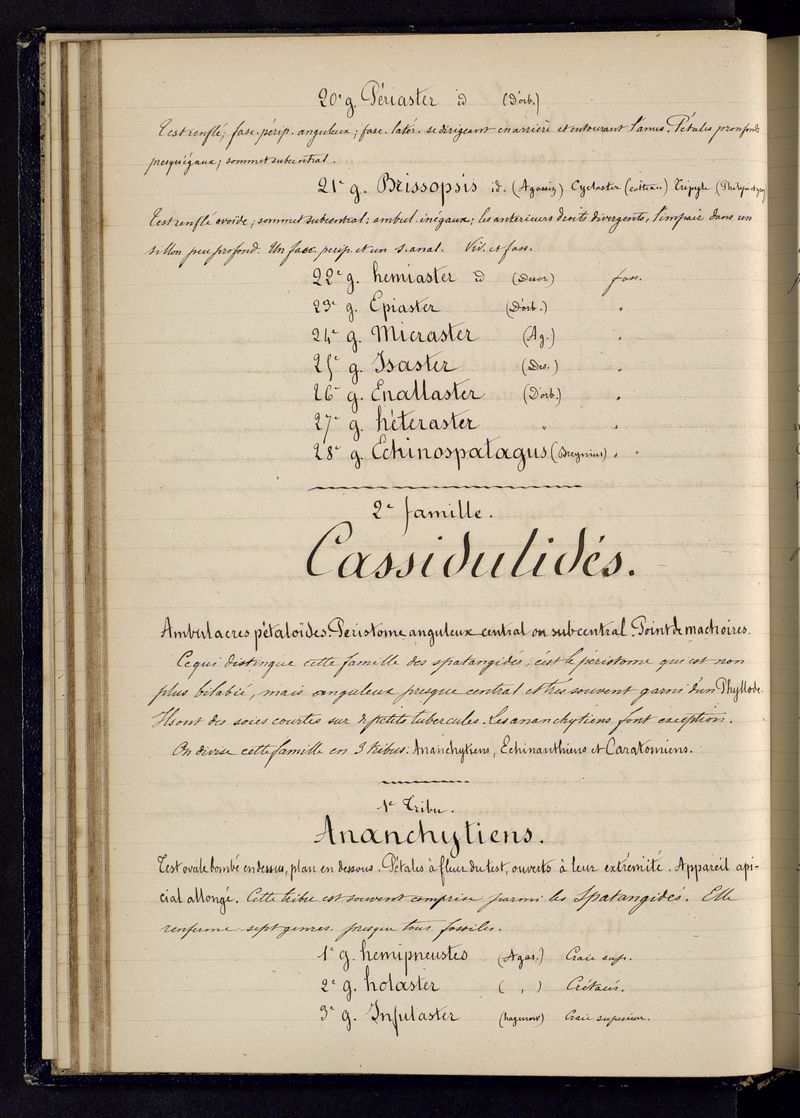 20e g. Périaster id (D'orb.)
Test renflé; fasc. périp. anguleux; fasc. latér. se dirigeant en arrière et entourant l'anus. Pétales pronfonds
presqu'égaux; sommet subcentral.
21e g. Brissopsis id. (Agassiz) Cycloster (cotteau) Tripyle
Test renflé ovoïde; sommet subcentral; ambul. inégaux; les antérieurs droits divergents, l'impair dans un
sillon peu profond. Un fasc. périp. et un s. anal. Viv. et foss.
22e g. hemiaster id (Desor) foss.
23e g. Epiaster (D'orb.) "
24e g. Micraster (Ag.) "
25e g. Isaster (Des.) "
26e g. Enallaster (D'orb.) "
27e g. héteraster " "
28e g. Echinospatagus (Breynius) " "
2e famille.
Cassidulidés.
Ambulacres pétaloïdes. Péristome anguleux central ou subcentral. Point de machoires.
Ce qui distingue cette famille des spatangidés, c'est le péristome qui est non
plus bilabié, mais anguleux presque central et très souvent garni d'un Phyllode.
Ils ont des soies courtes sur d petits tubercules. Les ananchytiens font exception.
On divise cette famille en 3 tribus: Ananchytiens, Echinanthiens et Caratomiens.
1e Tribu.
Ananchytiens.
Test ovale bombé en dessus, plan en dessous. Pétales à fleur du test, ouverts à leur extrémité. Appareil api-
cial allongé. Cette tribu est souvent comprise parmi les Spatangidés. Elle
renferme sept genres. presque tous fossiles.
1e g. hemipneustes (Agas.) Craie sup.
2e g. holaster ( " ) Crétacés.
3e g. Infulaster (hagenow) Craie superieur.